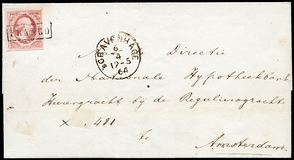 FRANCO
'S GRAVENHAGE
6
4
12-5
64
Directie
der Nationale Hypotheekbank
Heerengracht bij de Reguliersgracht
× 481
te
Amsterdam